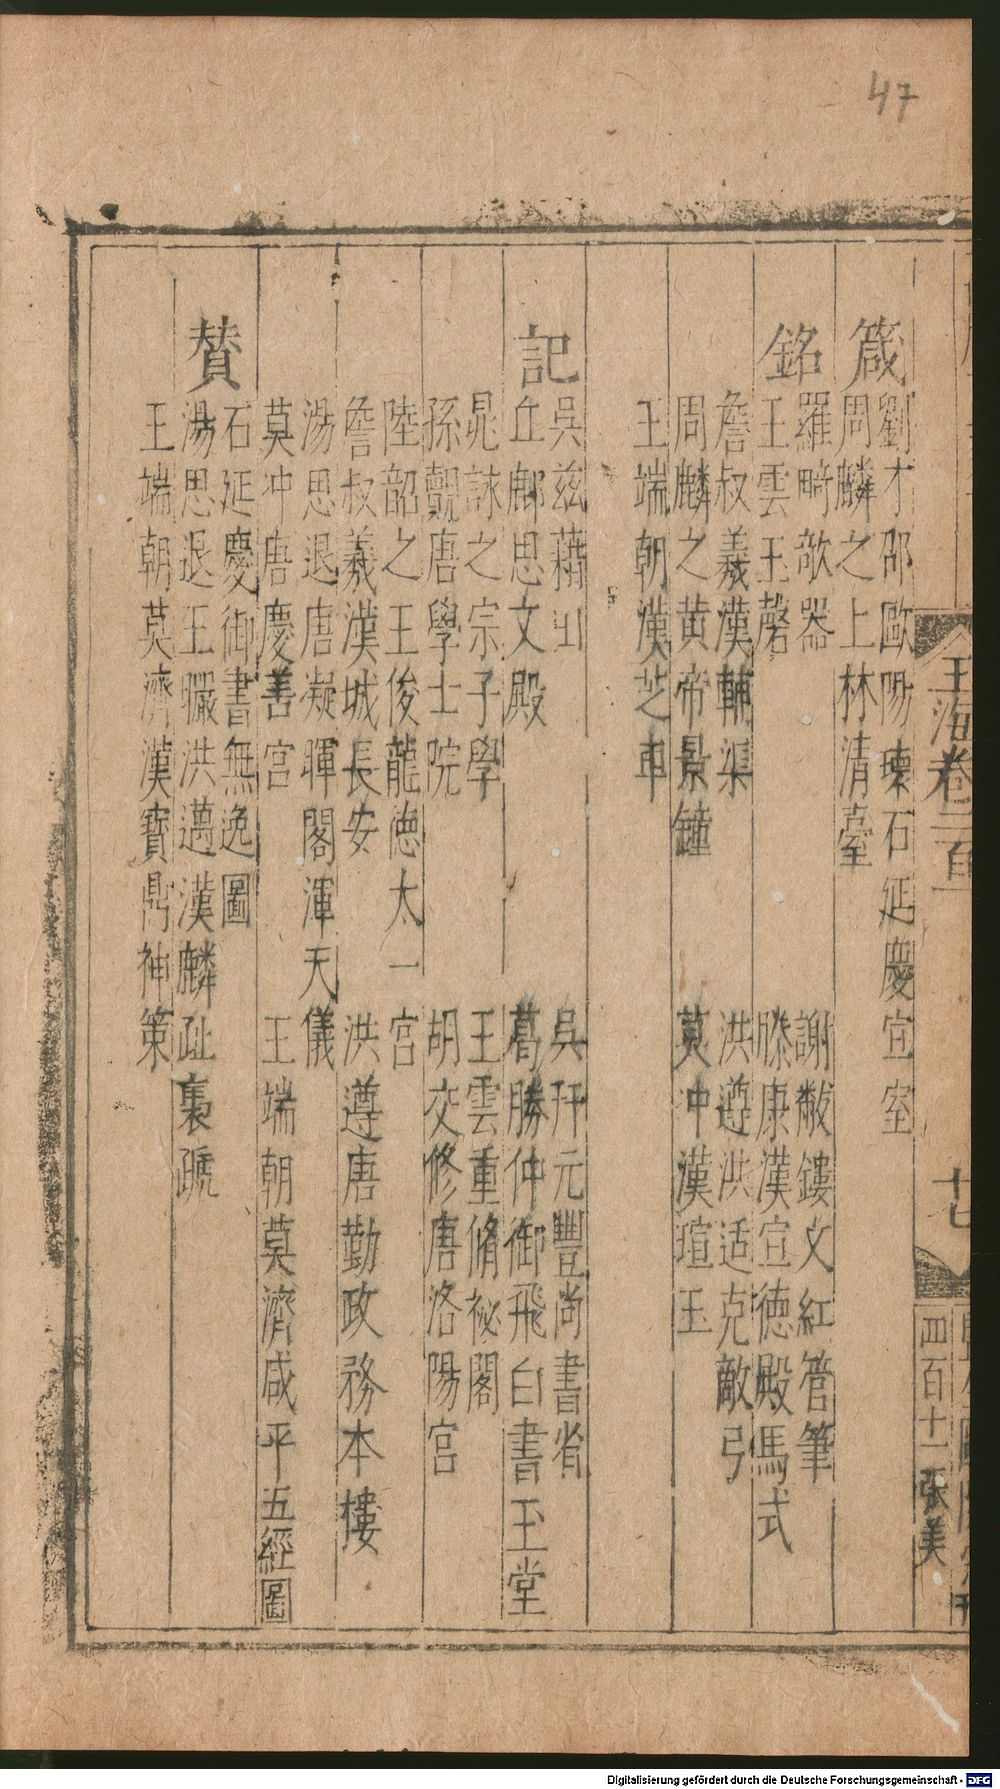 47
玉海卷二百
十七
四百十一 張美
箴
劉才邵歐陽瑓石延慶宣室
周麟之上林清臺
銘
羅畸欹器 謝黻鏤文紅管筆
王雲玉磬 滕康漢宣德殿馬式
詹叔羲漢輔渠 洪遵洪适克敵弓
周麟之黄帝景鐘 莫冲漢瑄玉
王端朝漢芝車
記
吳兹藉田 吳幵元豐尚書省
丘鄜思文殿 葛勝仲御飛白書玉堂
晁詠之宗子學 王雲重脩祕閣
孫覿唐學士院 胡交修唐洛陽宮
陸韶之王俊龍德太一宮
詹叔羲漢城長安 洪遵唐勤政務本樓
湯思退唐凝暉閣渾天儀
莫冲唐慶善宮 王端朝莫濟咸平五經圖
贊
石延慶御書無逸圖
湯思退王曮洪邁漢麟趾褭蹏
王端朝莫濟漢寶鼎神策
Digitalisierung gefördert durch die Deutsche Forschungsgemeinschaft - DFG